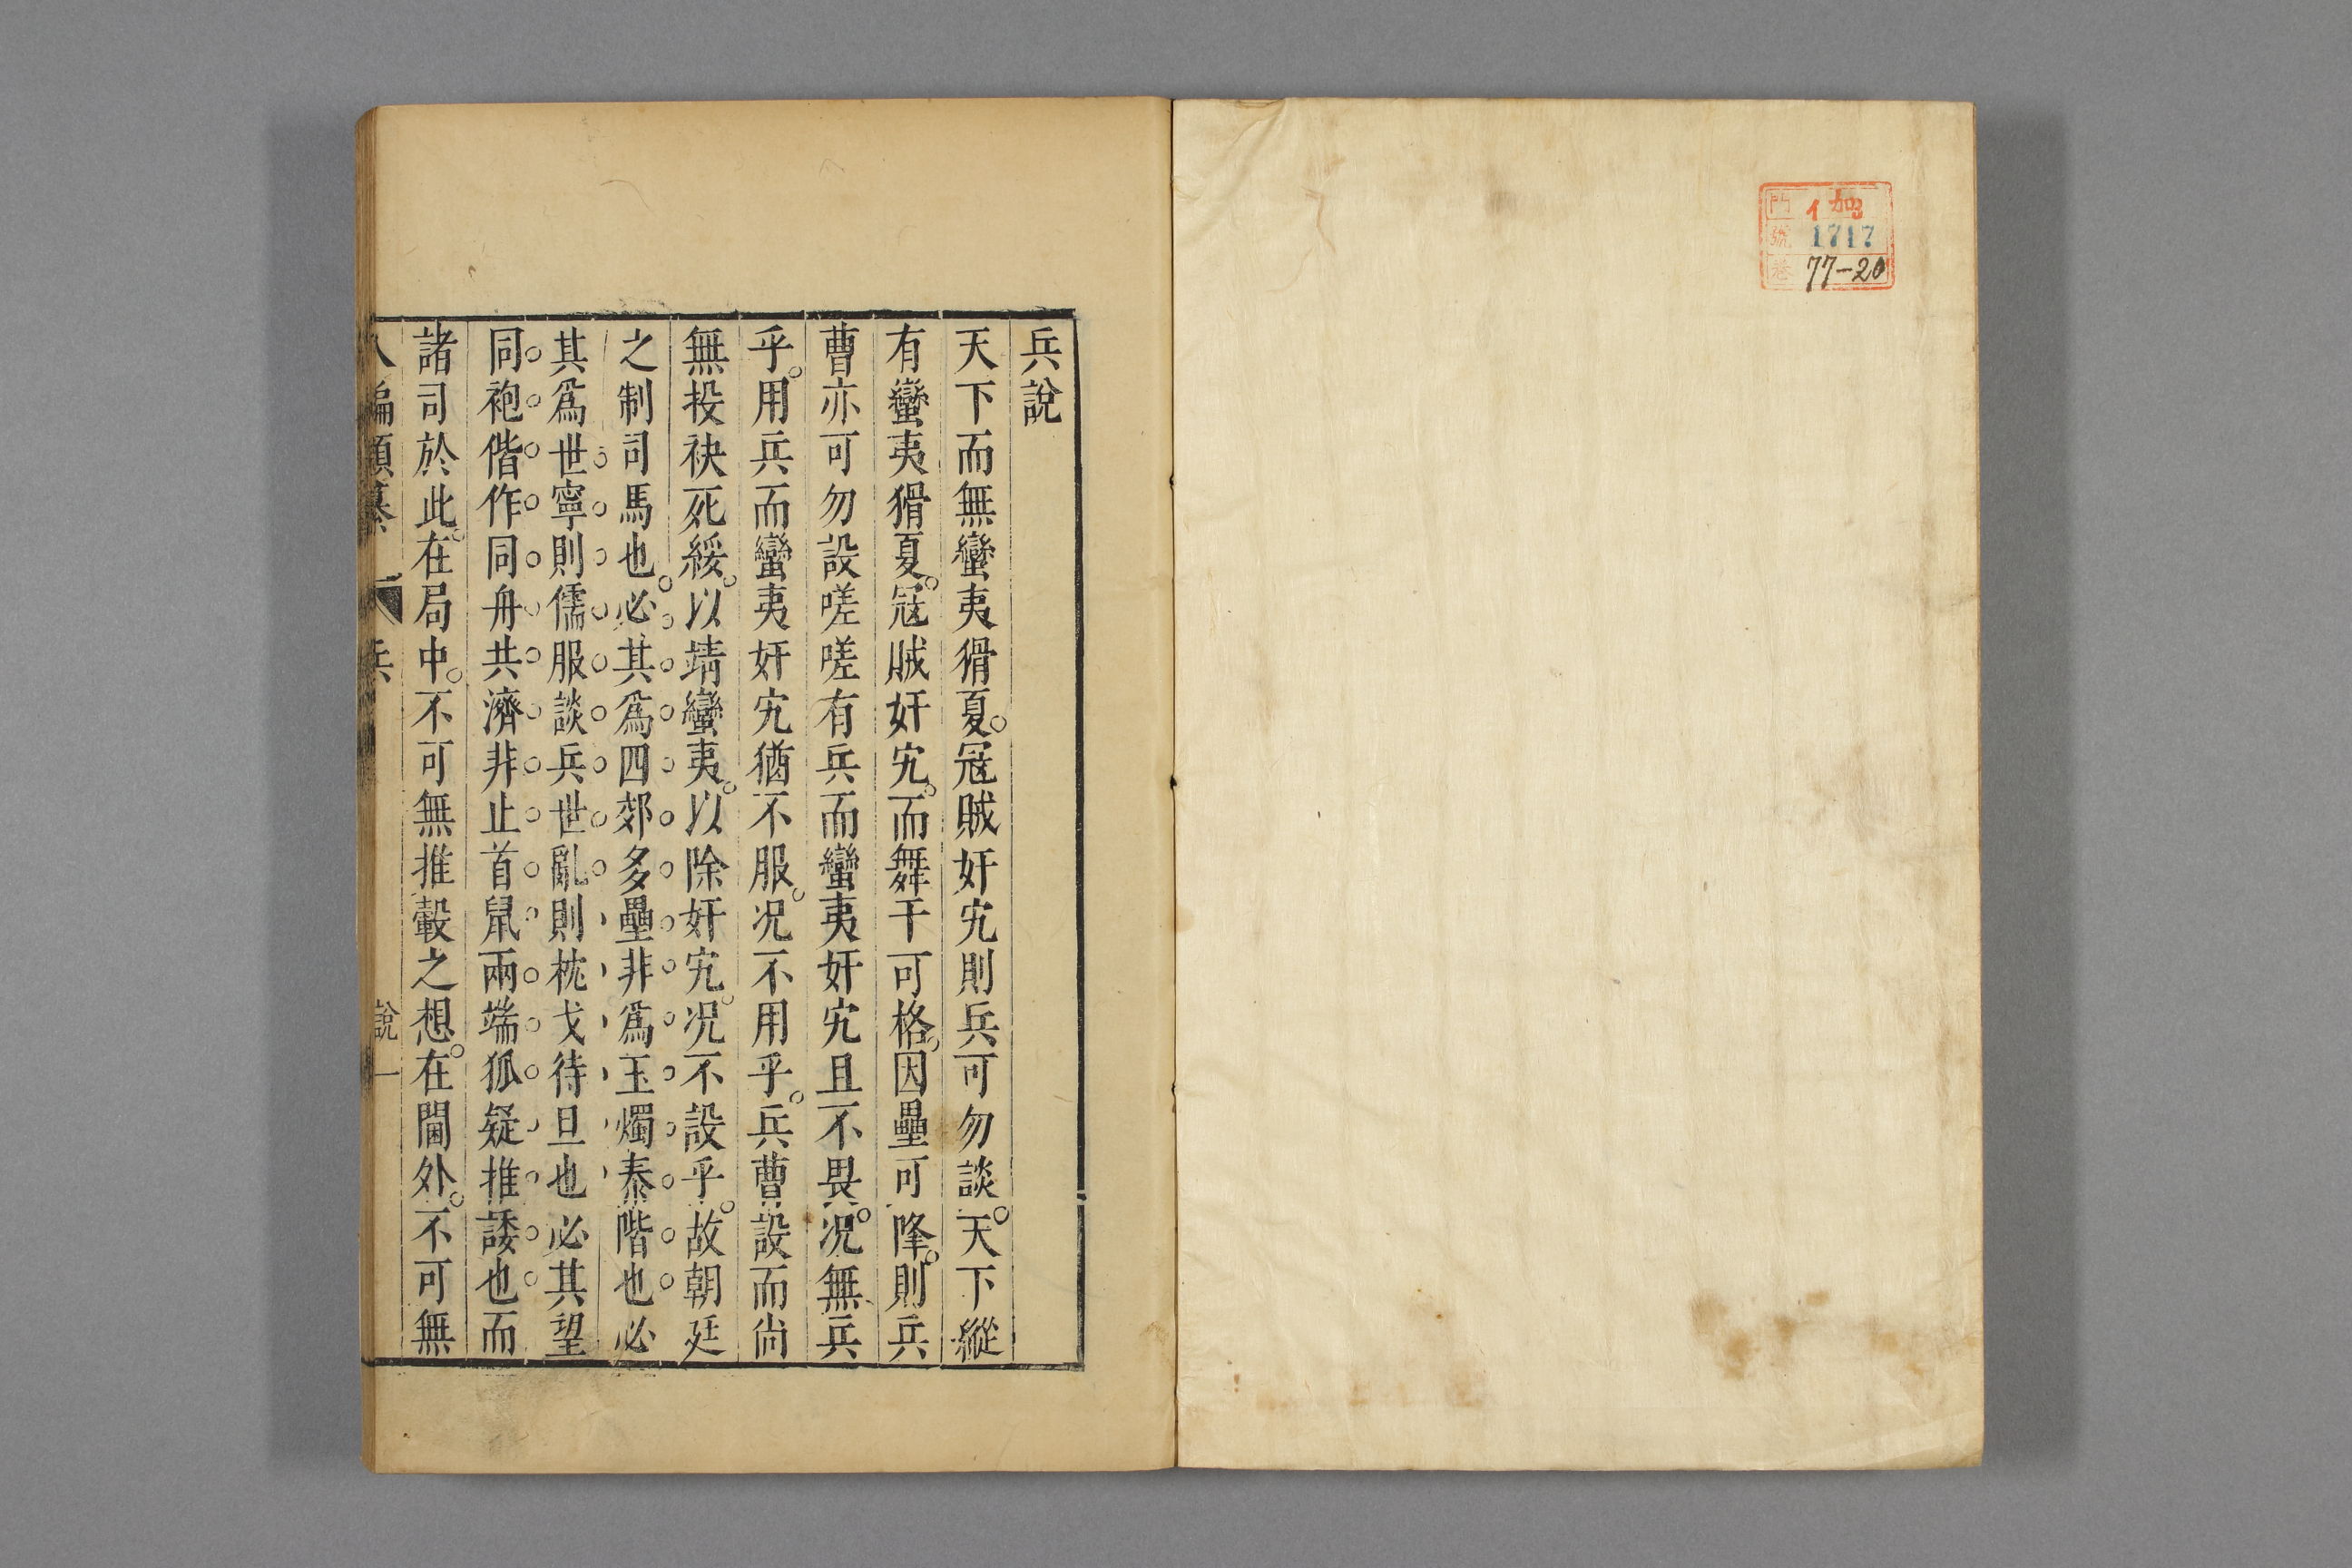 門 イ 加3
號 1717
巻 77-20
兵說
天下而無蠻夷猾夏。寇賊奸宄則兵可勿談。天下縱
有蠻夷猾夏。寇賊奸宄。而舞干可格。因壘可降。則兵
曹亦可勿設嗟嗟有兵而蠻夷奸宄且不畏。況無兵
乎。用兵而蠻夷奸宄猶不服。況不用乎。兵曹設而尚
無投袂死綏。以靖蠻夷。以除奸宄。況不設乎。故朝廷
之制司馬也。必其爲四郊多壘非爲玉燭泰階也必
其爲世寧則儒服談兵世亂則枕戈待旦也必其望
同袍偕作同舟共濟非止首鼠兩端狐疑推諉也而
諸司於此。在局中。不可無推轂之想。在閫外。不可無
八編類纂 兵 說 一